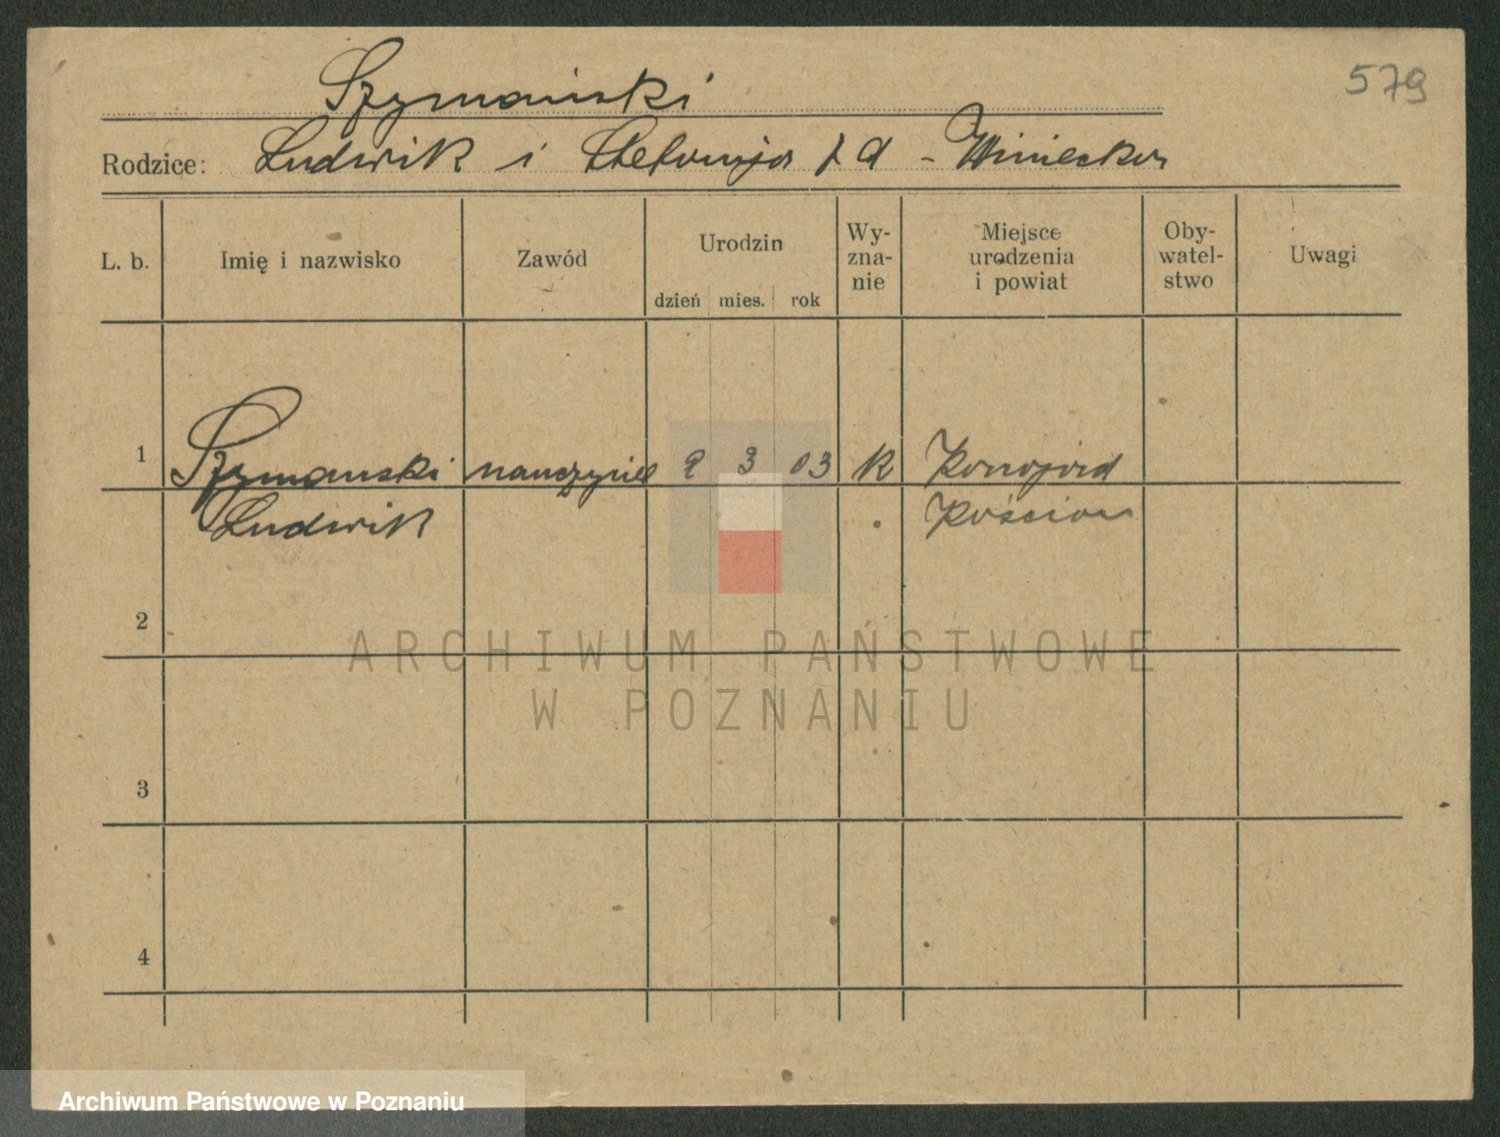 579
Szymański
Rodzice: Ludwik i Stefanja z d - Winiecka
L. b. Imię i nazwisko Zawód Urodzin dzień mies. rok Wy-zna-nie Miejsce urodzenia i powiat Oby-watel-stwo Uwagi
1 Szymanski nauczyciel 2 3 03 k Konojad
Ludwik Kościan
2
ARCHIWUM PAŃSTWOWE
W POZNANIU
3
4
Archiwum Państwowe w Poznaniu